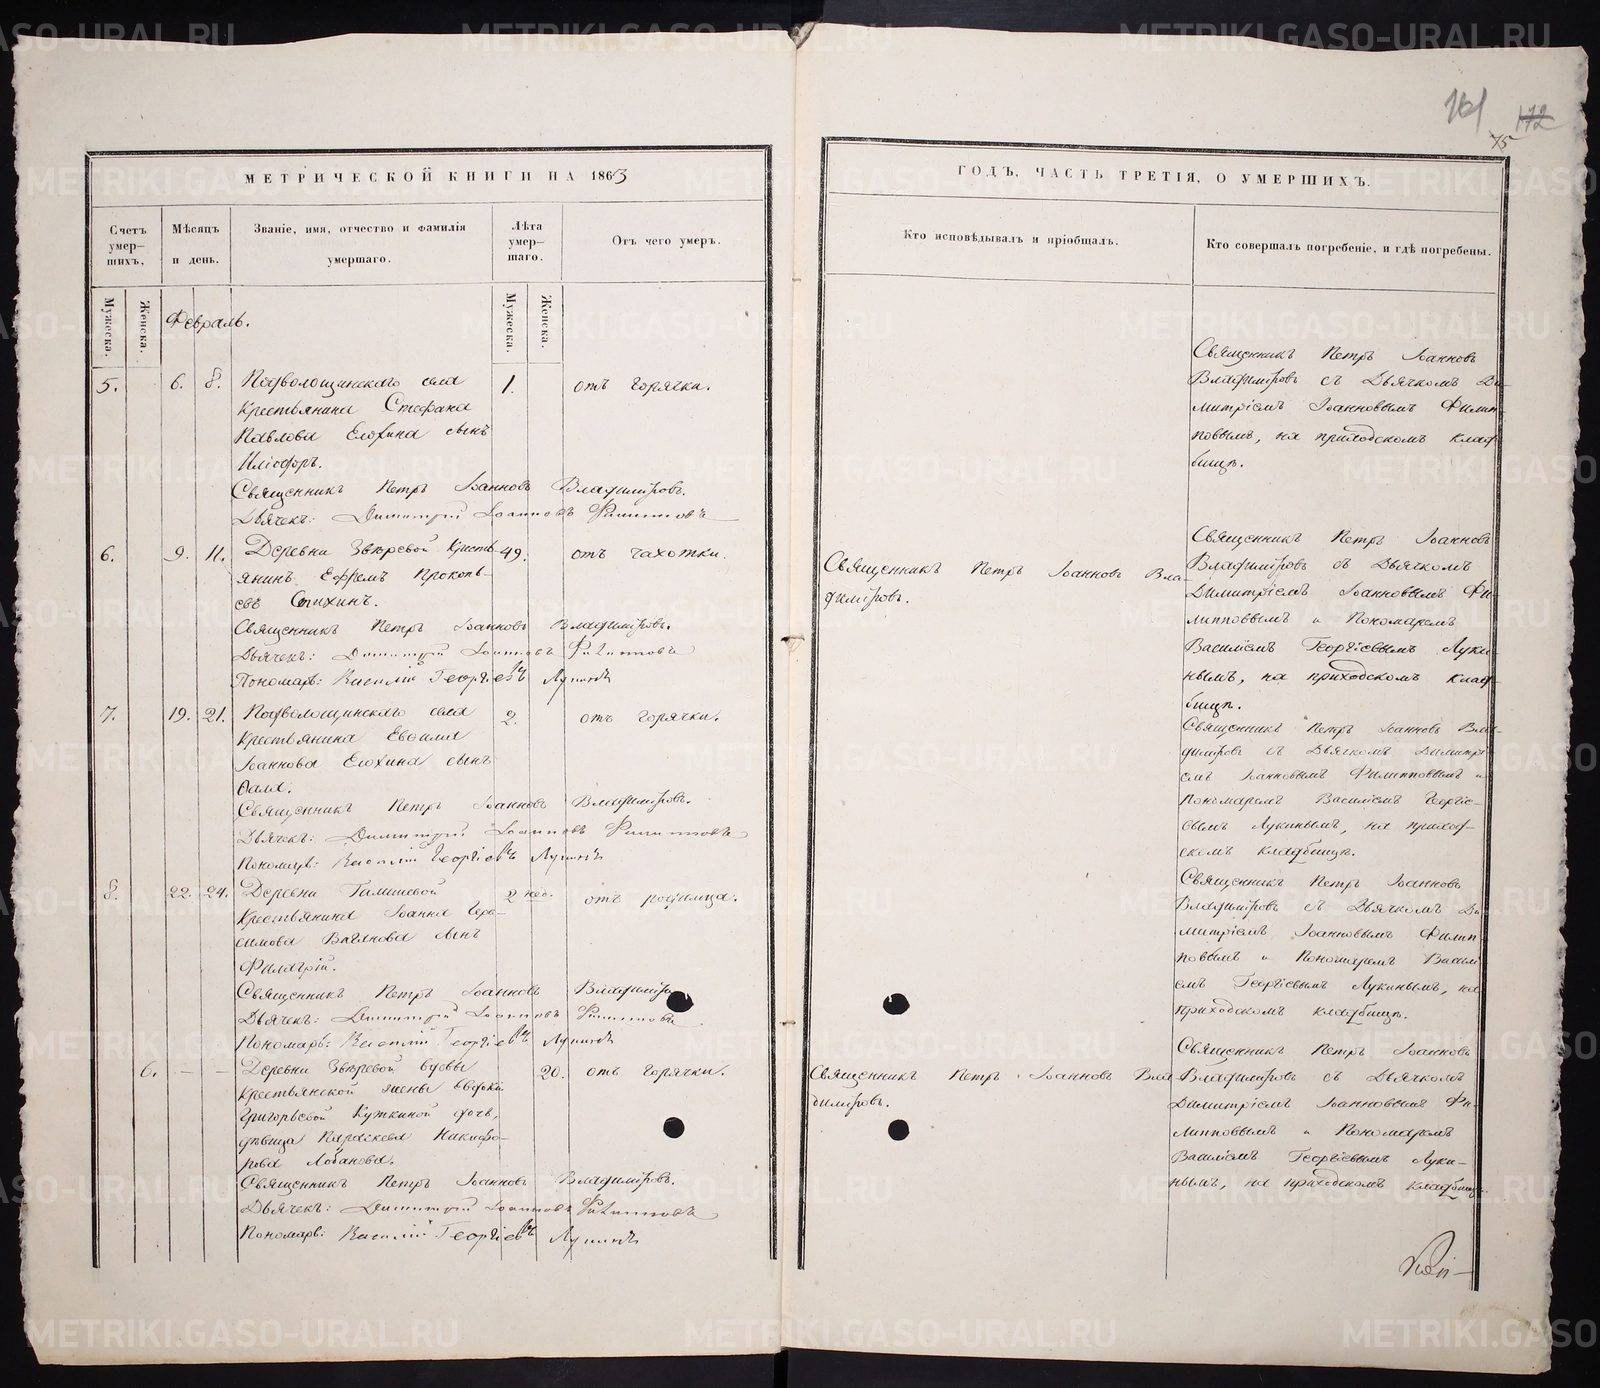 161 172
75
МЕТРИЧЕСКОЙ КНИГИ НА 1863
ГОДЪ, ЧАСТЬ ТРЕТІЯ, О УМЕРШИХЪ.
Счетъ умер-шихъ.
Мѣсяцъ и день.
Званіе, имя, отчество и фамилія умершаго.
Лѣта умер-шаго.
Отъ чего умеръ.
Кто исповѣдывалъ и пріобщалъ.
Кто совершалъ погребеніе, и гдѣ погребены.
Мужеска.
Женска.
Мужеска.
Женска.
Февраль.
5. 6. 8. Подволошинскаго села 1. отъ горячки.
крестьянина Стефана
Павлова Елохина сынъ
Священникъ Петръ Іоанновъ Владиміровъ.
Дьячекъ: Димитрій Іоанновъ Филипповъ
Священникъ Петръ Іоанновъ
Владиміровъ съ Дьячкомъ Ди-
митріемъ Іоанновымъ Филип-
повымъ, на приходскомъ клад-
бищѣ.
6. 9. 11. Деревни Звѣревой кресть- 49. отъ чахотки.
янинъ Ефремъ Прокопь-
евъ
Священникъ Петръ Іоанновъ Владиміровъ.
Дьячекъ: Димитрій Іоанновъ Филипповъ
Пономарь: Василій Георгіевъ Лукинъ
Священникъ Петръ Іоанновъ Вла-
диміровъ.
Священникъ Петръ Іоанновъ
Владиміровъ съ Дьячкомъ
Димитріемъ Іоанновымъ Фи-
липповымъ и Пономаремъ
Василіемъ Георгіевымъ Луки-
нымъ, на приходскомъ клад-
бищѣ.
7. 19. 21. Подволошинскаго села 2. отъ горячки.
крестьянина
Іоаннова Елохина сынъ
Священникъ Петръ Іоанновъ Владиміровъ.
Дьячекъ: Димитрій Іоанновъ Филипповъ
Пономарь: Василій Георгіевъ Лукинъ
Священникъ Петръ Іоанновъ Вла-
диміровъ съ Дьячкомъ Димитрі-
емъ Іоанновымъ Филипповымъ и
Пономаремъ Василіемъ Георгіе-
вымъ Лукинымъ, на приход-
скомъ кладбищѣ.
8. 22. 24. Деревни 2 нед. отъ родимца.
крестьянина Іоанна Гера-
симова сынъ
Филагрій.
Священникъ Петръ Іоанновъ Владиміро
Дьячекъ: Димитрій Іоанновъ Филипповъ
Пономарь: Василій Георгіевъ Лукинъ
Священникъ Петръ Іоанновъ
Владиміровъ съ Дьячкомъ Ди-
митріемъ Іоанновымъ Филип-
повымъ и Пономаремъ Василі-
емъ Георгіевымъ Лукинымъ, на
приходскомъ кладбищѣ.
6. — — Деревни Звѣревой вдовы 20. отъ горячки.
крестьянской жены Евдокіи
Григорьевой дочь,
дѣвица Параскева Никифо-
рова Лобанова.
Священникъ Петръ Іоанновъ Владиміровъ.
Дьячекъ: Димитрій Іоанновъ Филипповъ
Пономарь: Василій Георгіевъ Лукинъ
Священникъ Петръ Іоанновъ Вла-
диміровъ.
Священникъ Петръ Іоанновъ
Владиміровъ съ Дьячкомъ
Димитріемъ Іоанновымъ Фи-
липповымъ и Пономаремъ
Василіемъ Георгіевымъ Луки-
нымъ, на приходскомъ кладбищѣ.
METRIKI.GASO-URAL.RU